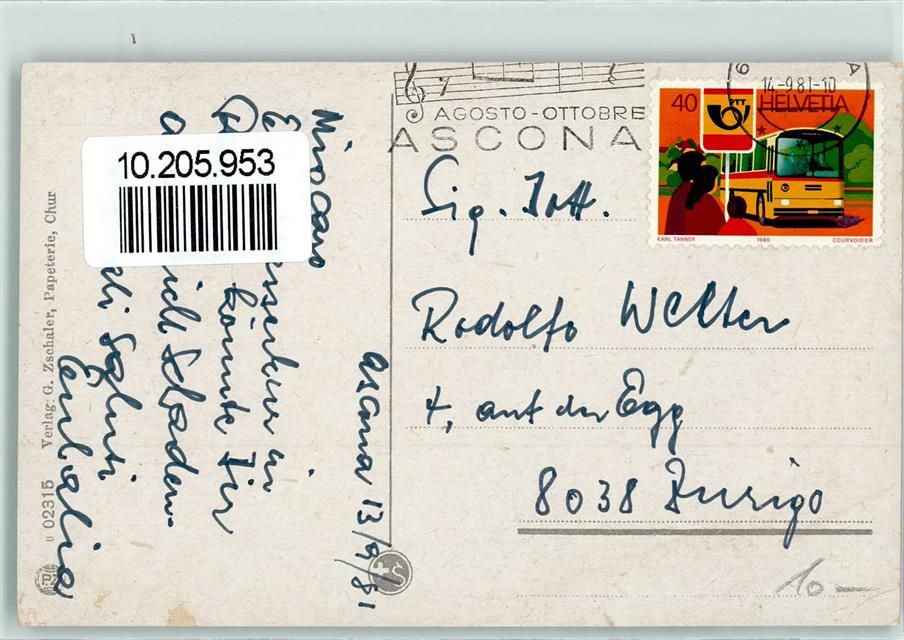 14.-9.81-10
AGOSTO-OTTOBRE
ASCONA
40
HELVETIA
KARL TANNER 1980 COURVOISIER
10.205.953
Ascona 13/9/81
Mio caro
in
könnte Dir
Schaden.
Saluti
Eulalia
Sig. Dott.
Rodolfo Welter
4, auf der Egg
8038 Zurigo
10 —
Verlag: G. Zschaler, Papeterie, Chur
U 02315
PZ